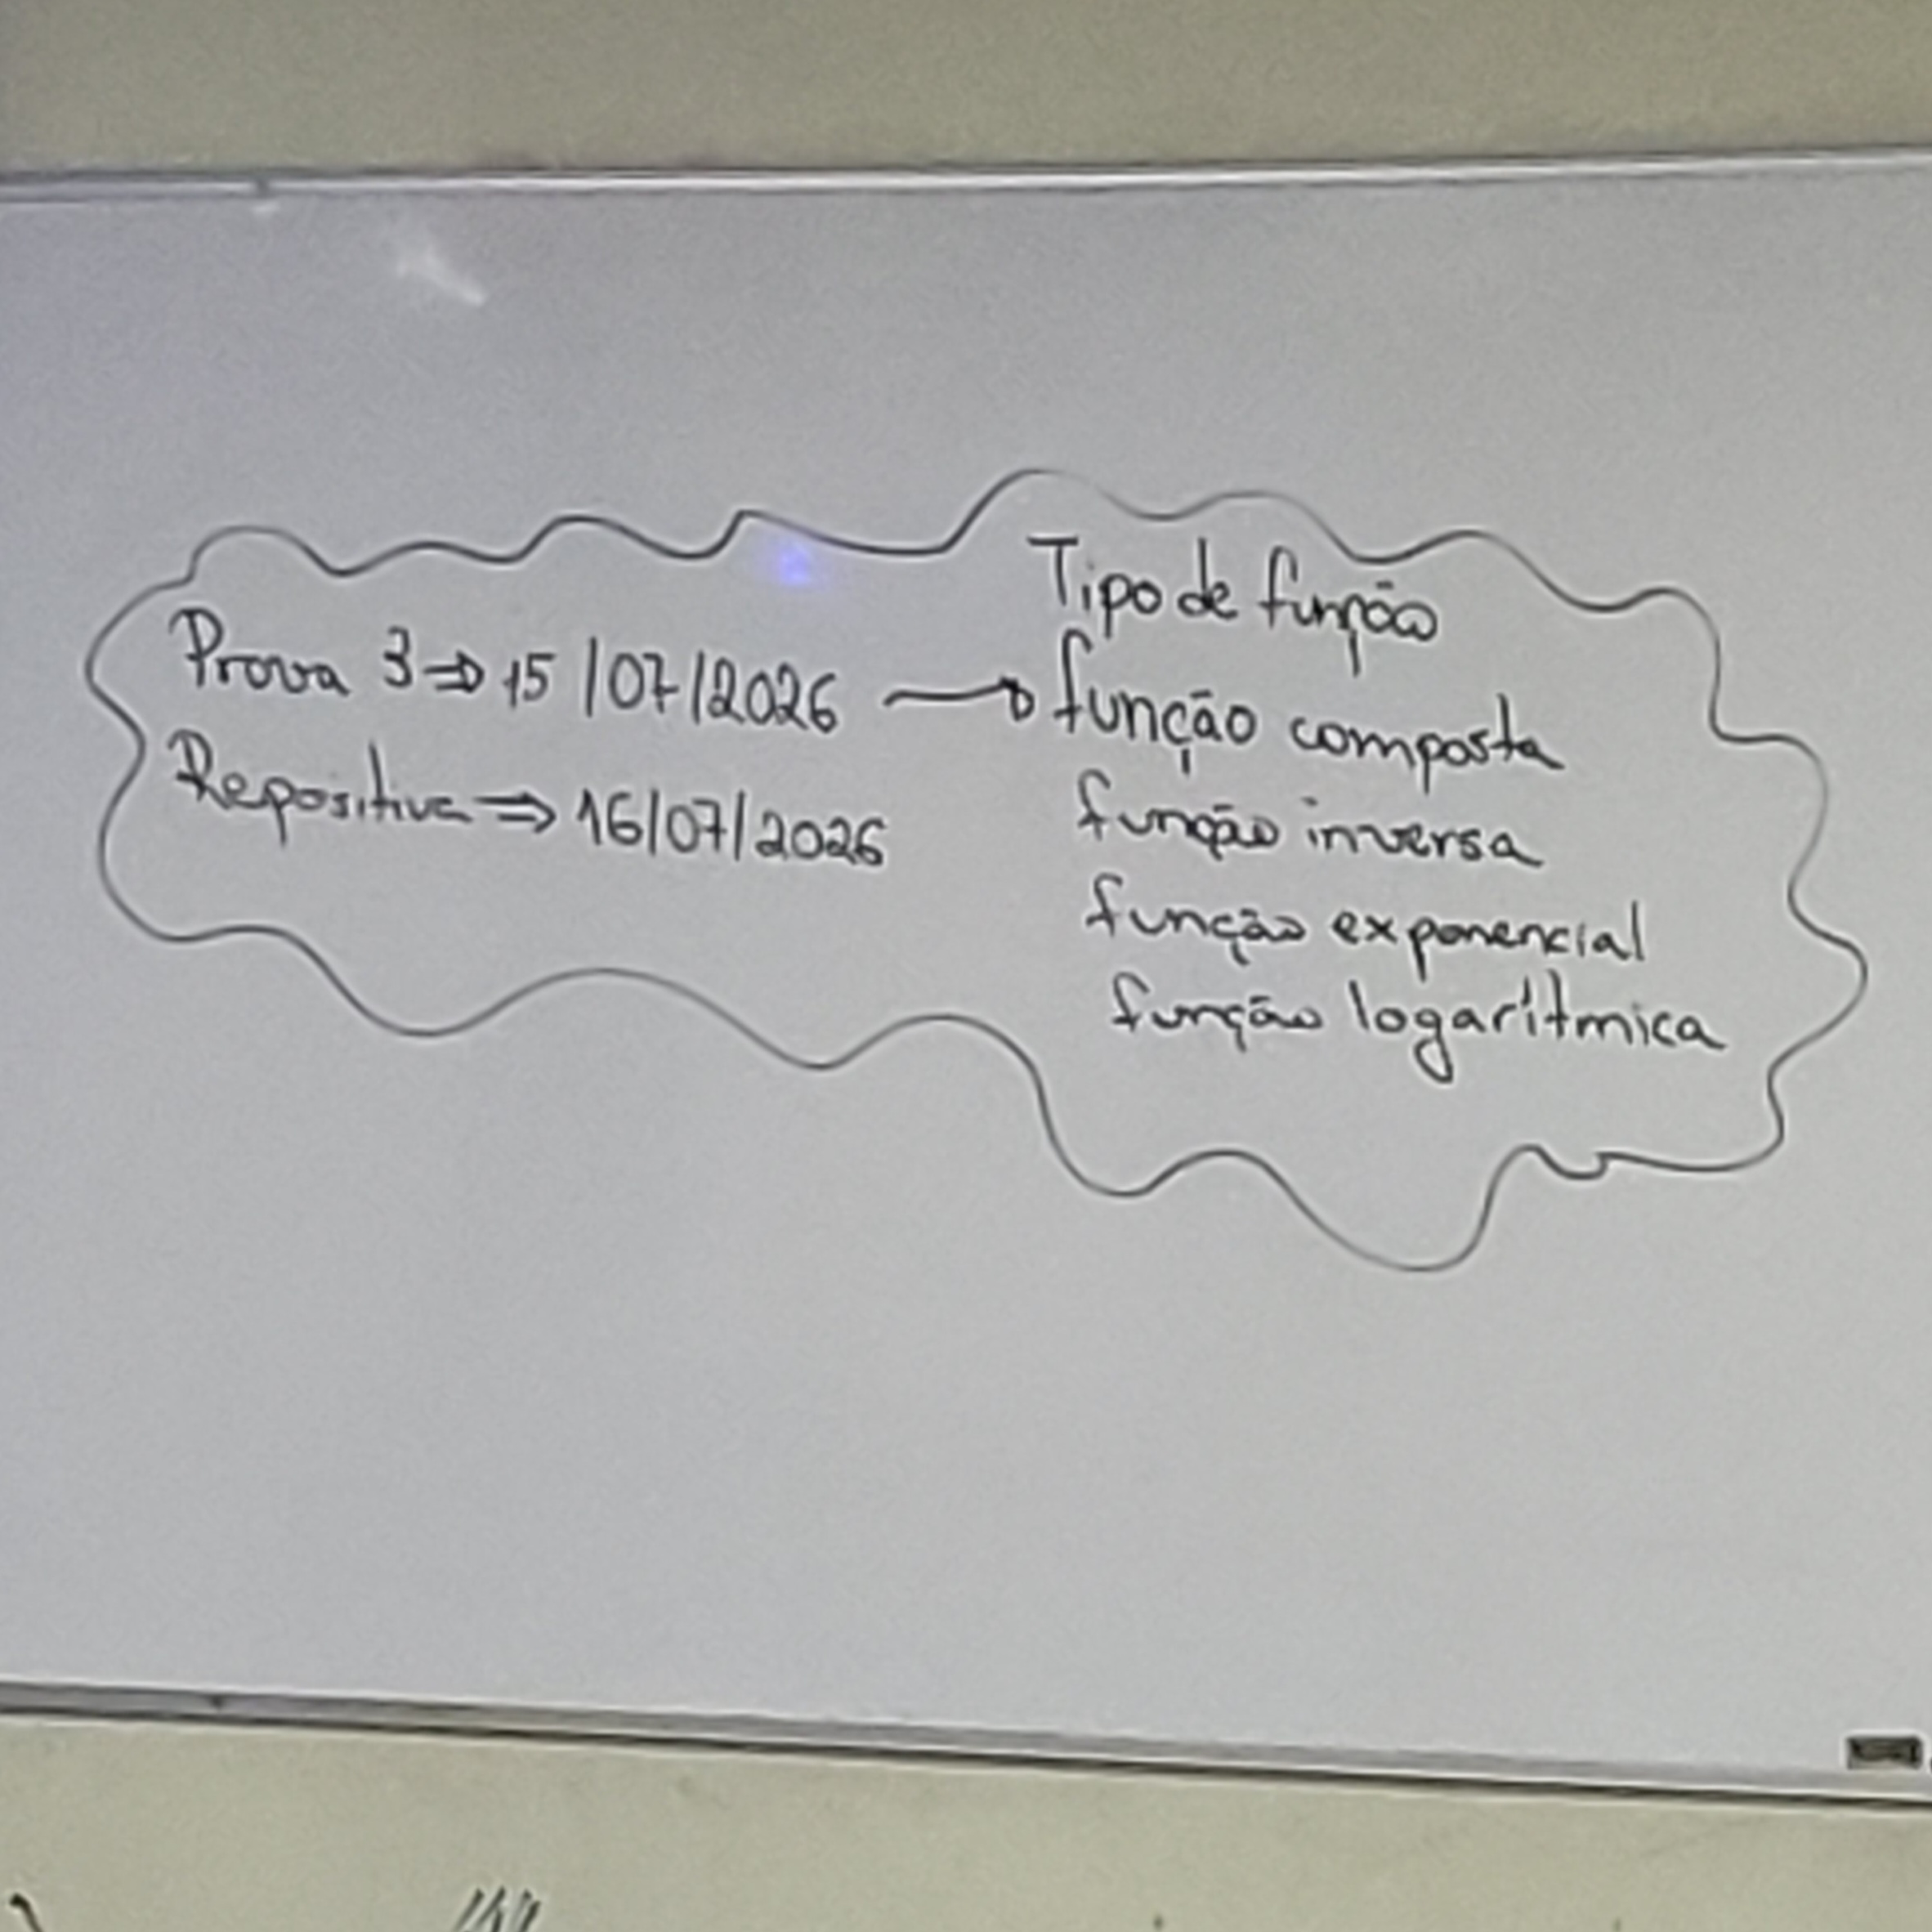 Tipo de função
Prova 3 ⇒ 15/07/2026 → função composta
Repositiva ⇒ 16/07/2026
função inversa
função exponencial
função logarítmica